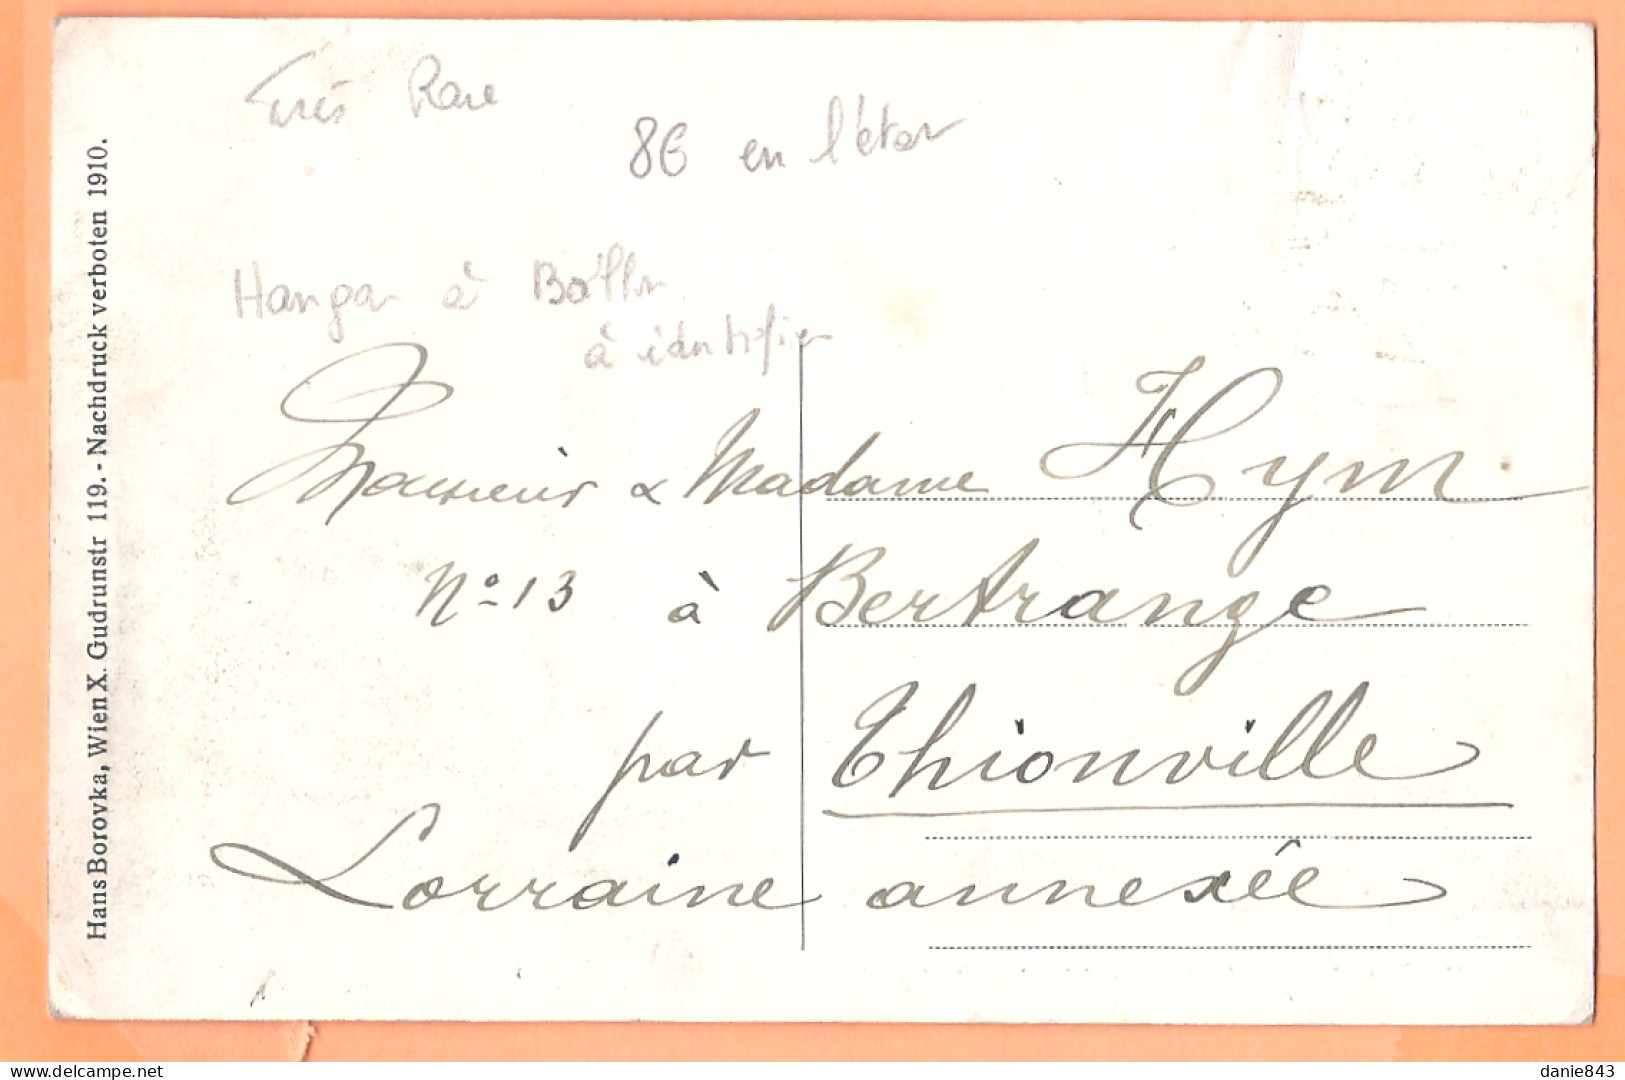 Très Rare
86 en l'état
Hangar à
à identifier
Monsieur & Madame Hym
Nº 13 à Bertrange
par Thionville
Lorraine annexée
Hans Borovka, Wien X. Gudrunstr 119. - Nachdruck verboten 1910.
delcampe.net
danie843